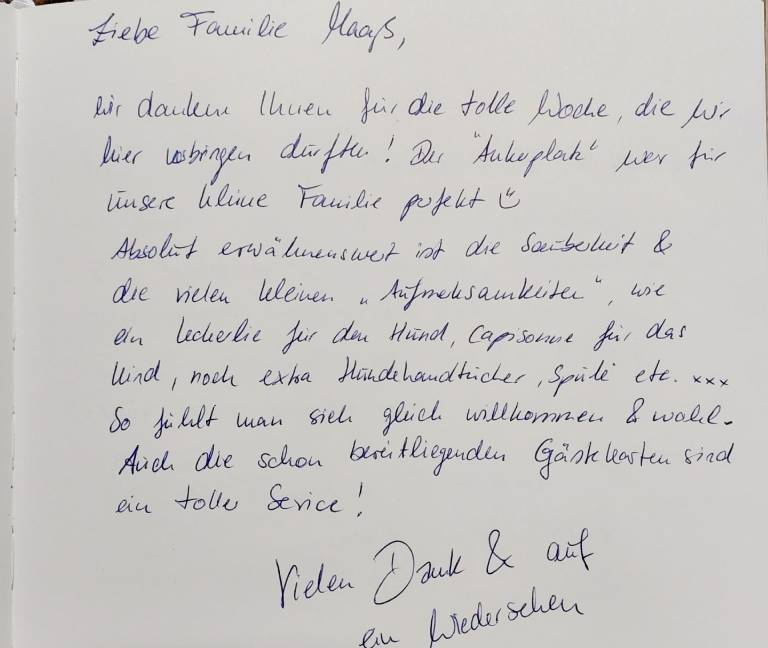 Liebe Familie Maaß,
wir danken Ihnen für die tolle Woche, die wir
hier verbringen durften! Der "Ankerplatz" war für
unsere kleine Familie perfekt ☺
Absolut erwähnenswert ist die Sauberkeit &
die vielen kleinen „Aufmerksamkeiten", wie
ein Leckerlie für den Hund, Caprisonne für das
Kind, noch extra Hundehandtücher, Spüli etc. xxx
So fühlt man sich gleich willkommen & wohl.
Auch die schon bereitliegenden Gästekarten sind
ein toller Service!
Vielen Dank & auf
ein Wiedersehen